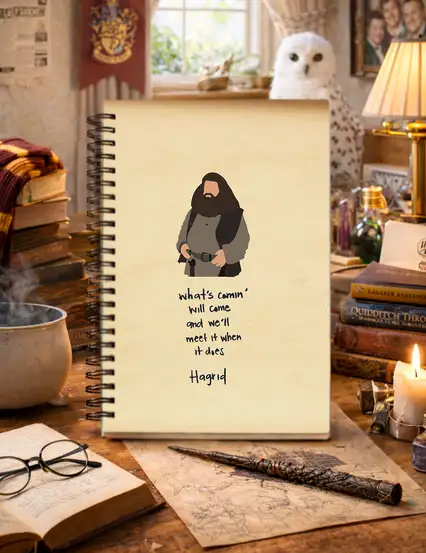 what's comin'
will come
and we'll
meet it when
it does
Hagrid
QUIDDITCH THROUGH